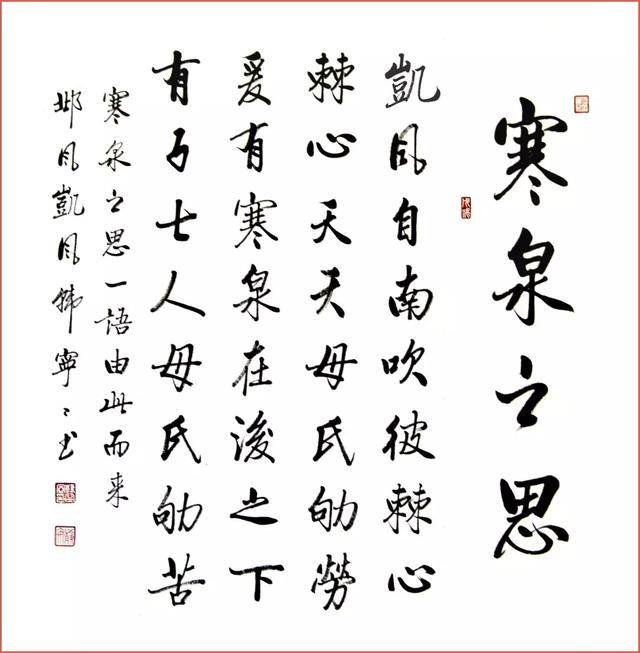 寒泉之思
凱風自南吹彼棘心
棘心夭夭母氏劬勞
爰有寒泉在浚之下
有子士人母氏劬苦
寒泉之思一語由此而来
邶風凱風韩寧〻书